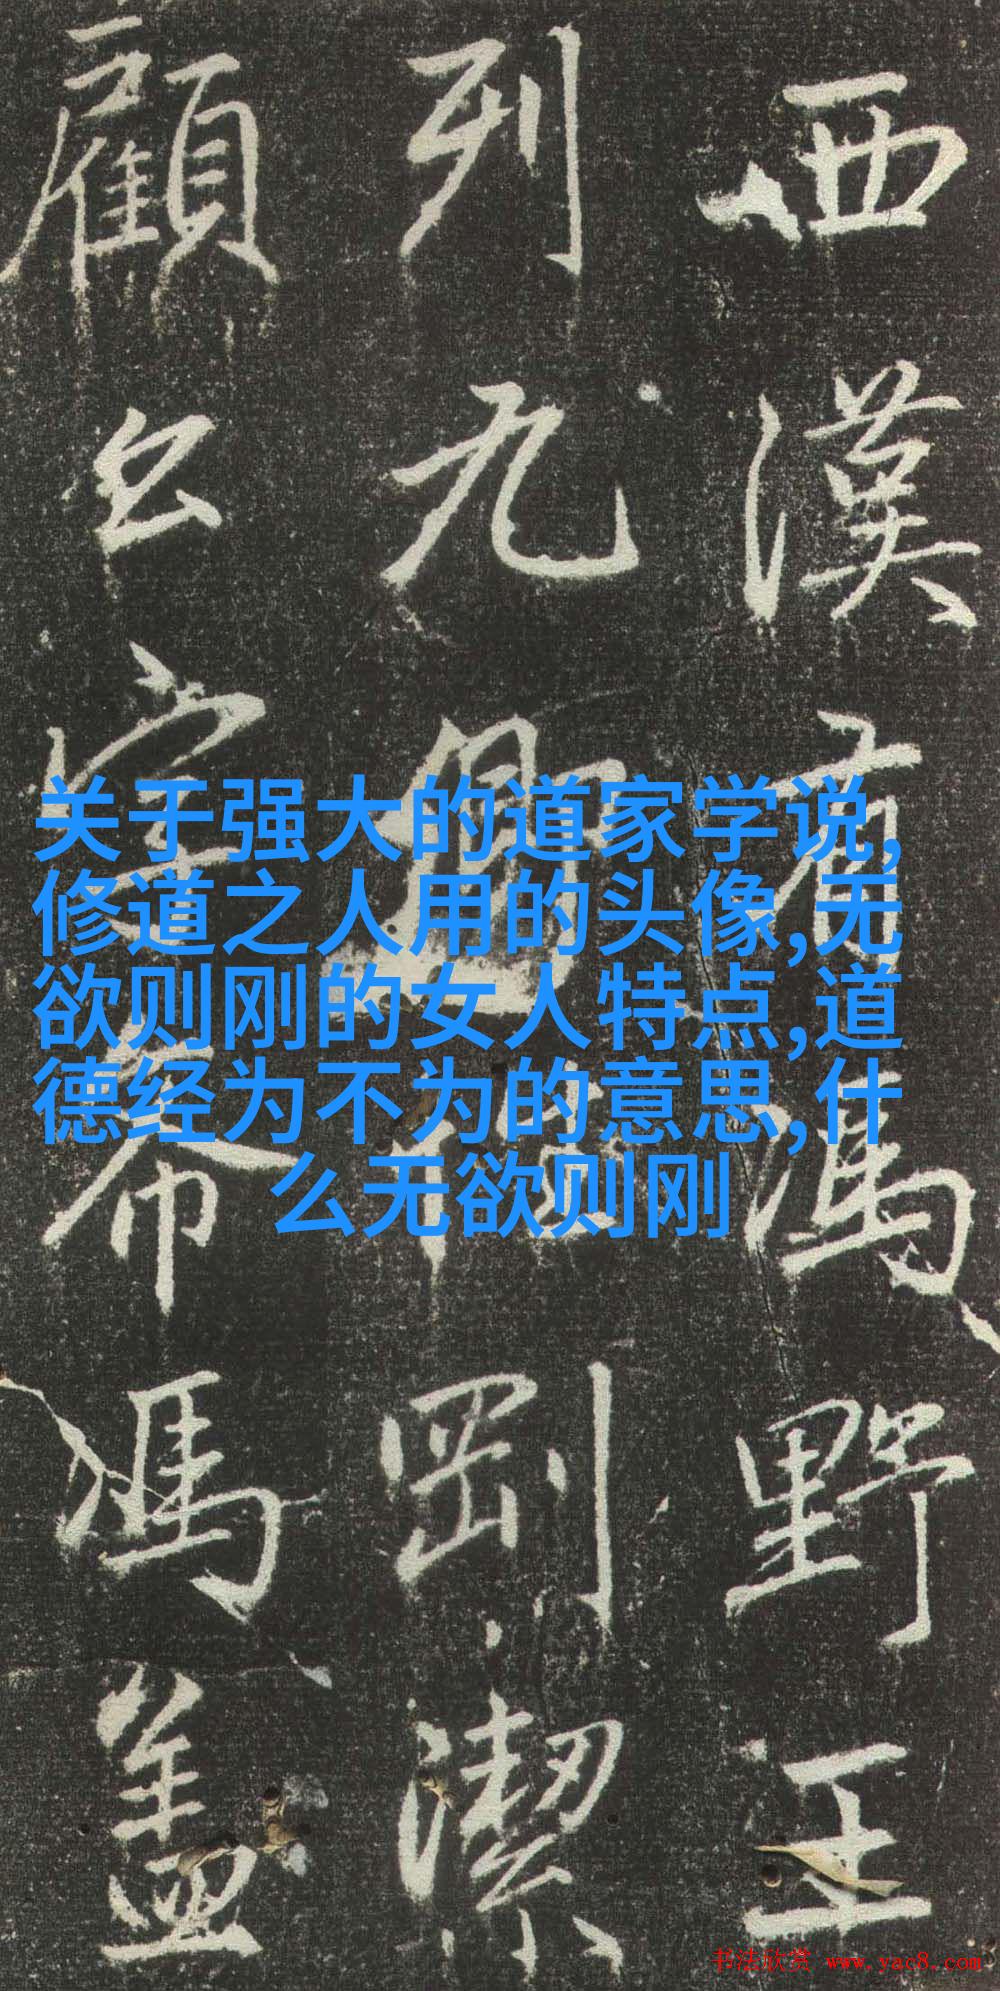 西漢有馮野王
列九卿剛潔
顧公宰希馮蓋
关于强大的道家学说,
修道之人用的头像,无
欲则刚的女人特点,道
德经为不为的意思,什
么无欲则刚
书法欣赏 www.yac8.com